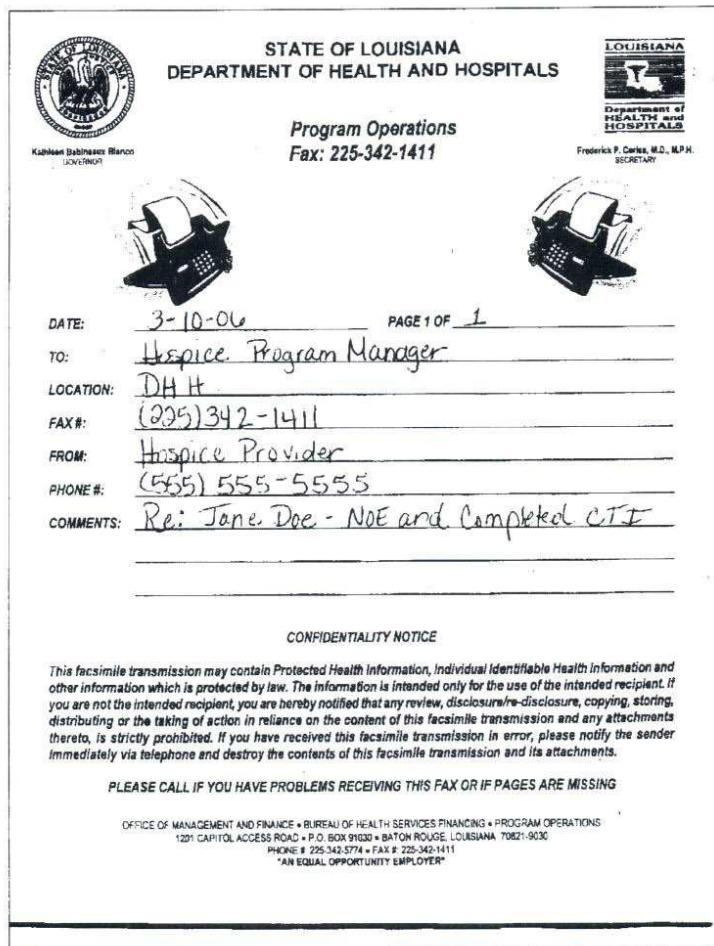 STATE OF LOUISIANA
DEPARTMENT OF HEALTH AND HOSPITALS
LOUISIANA
Department of
HEALTH and
HOSPITALS
Program Operations
Fax: 225-342-1411
Kathleen Babineaux Blanco
GOVERNOR
Frederick P. Cerise, M.D., M.P.H.
SECRETARY
DATE: 3-10-06 PAGE 1 OF 1
TO: Hospice Program Manager
LOCATION: DHH
FAX #: (225)342-1411
FROM: Hospice Provider
PHONE #: (555) 555-5555
COMMENTS: Re: Jane Doe - NOE and Completed CTI
CONFIDENTIALITY NOTICE
This facsimile transmission may contain Protected Health Information, Individual Identifiable Health Information and
other information which is protected by law. The information is intended only for the use of the intended recipient. If
you are not the intended recipient, you are hereby notified that any review, disclosure/re-disclosure, copying, storing,
distributing or the taking of action in reliance on the content of this facsimile transmission and any attachments
thereto, is strictly prohibited. If you have received this facsimile transmission in error, please notify the sender
immediately via telephone and destroy the contents of this facsimile transmission and its attachments.
PLEASE CALL IF YOU HAVE PROBLEMS RECEIVING THIS FAX OR IF PAGES ARE MISSING
OFFICE OF MANAGEMENT AND FINANCE • BUREAU OF HEALTH SERVICES FINANCING • PROGRAM OPERATIONS
1201 CAPITOL ACCESS ROAD • P.O. BOX 91030 • BATON ROUGE, LOUISIANA 70821-9030
PHONE # 225-342-5774 • FAX #: 225-342-1411
"AN EQUAL OPPORTUNITY EMPLOYER"